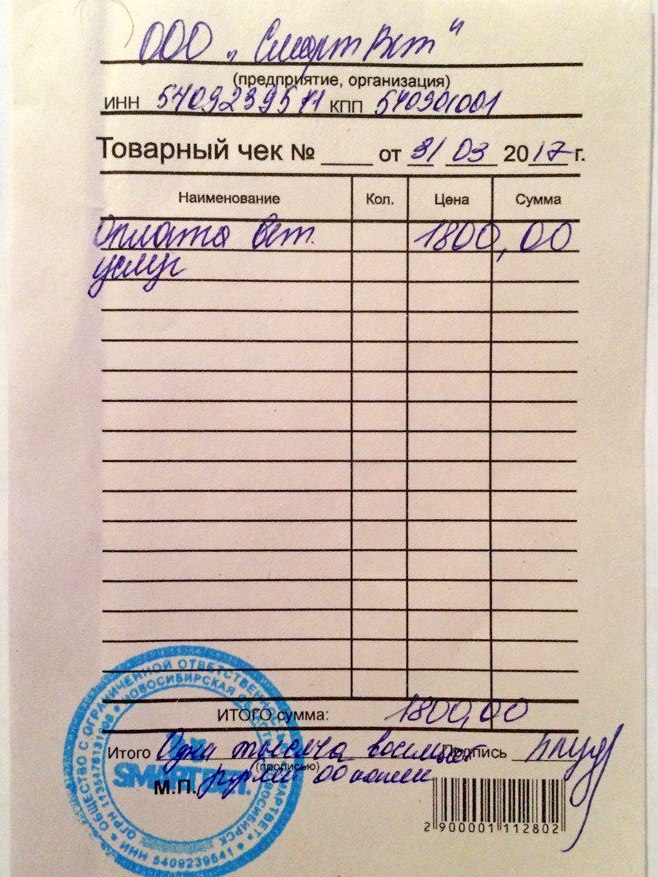 ООО „СмартВет"
(предприятие, организация)
ИНН 5409239541 КПП 540901001
Товарный чек № ____ от 31 03 2017 г.
Наименование Кол. Цена Сумма
Оплата вет. 1800,00
услуг
ИТОГО сумма: 1800,00
Итого Одна тысяча восемьсот Подпись
(прописью)
М.П. рублей 00 копеек
2900001112802
ОБЩЕСТВО С ОГРАНИЧЕННОЙ ОТВЕТСТВЕННОСТЬЮ
НОВОСИБИРСКАЯ ОБЛАСТЬ
НОВОСИБИРСК
ИНН 5409239541
ОГРН